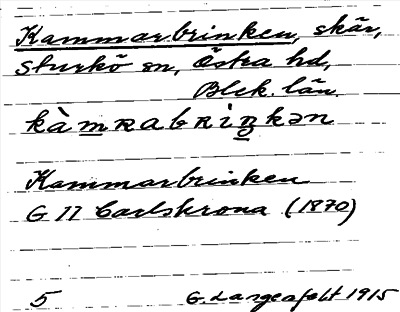 Kammarbrinken, skär,
Sturkö sn, Östra hd,
Blek. län.
kàmʀabʀiŋkən
Kammarbrinken
G 77 Carlskrona (1870)
5 G. Langenfelt 1915